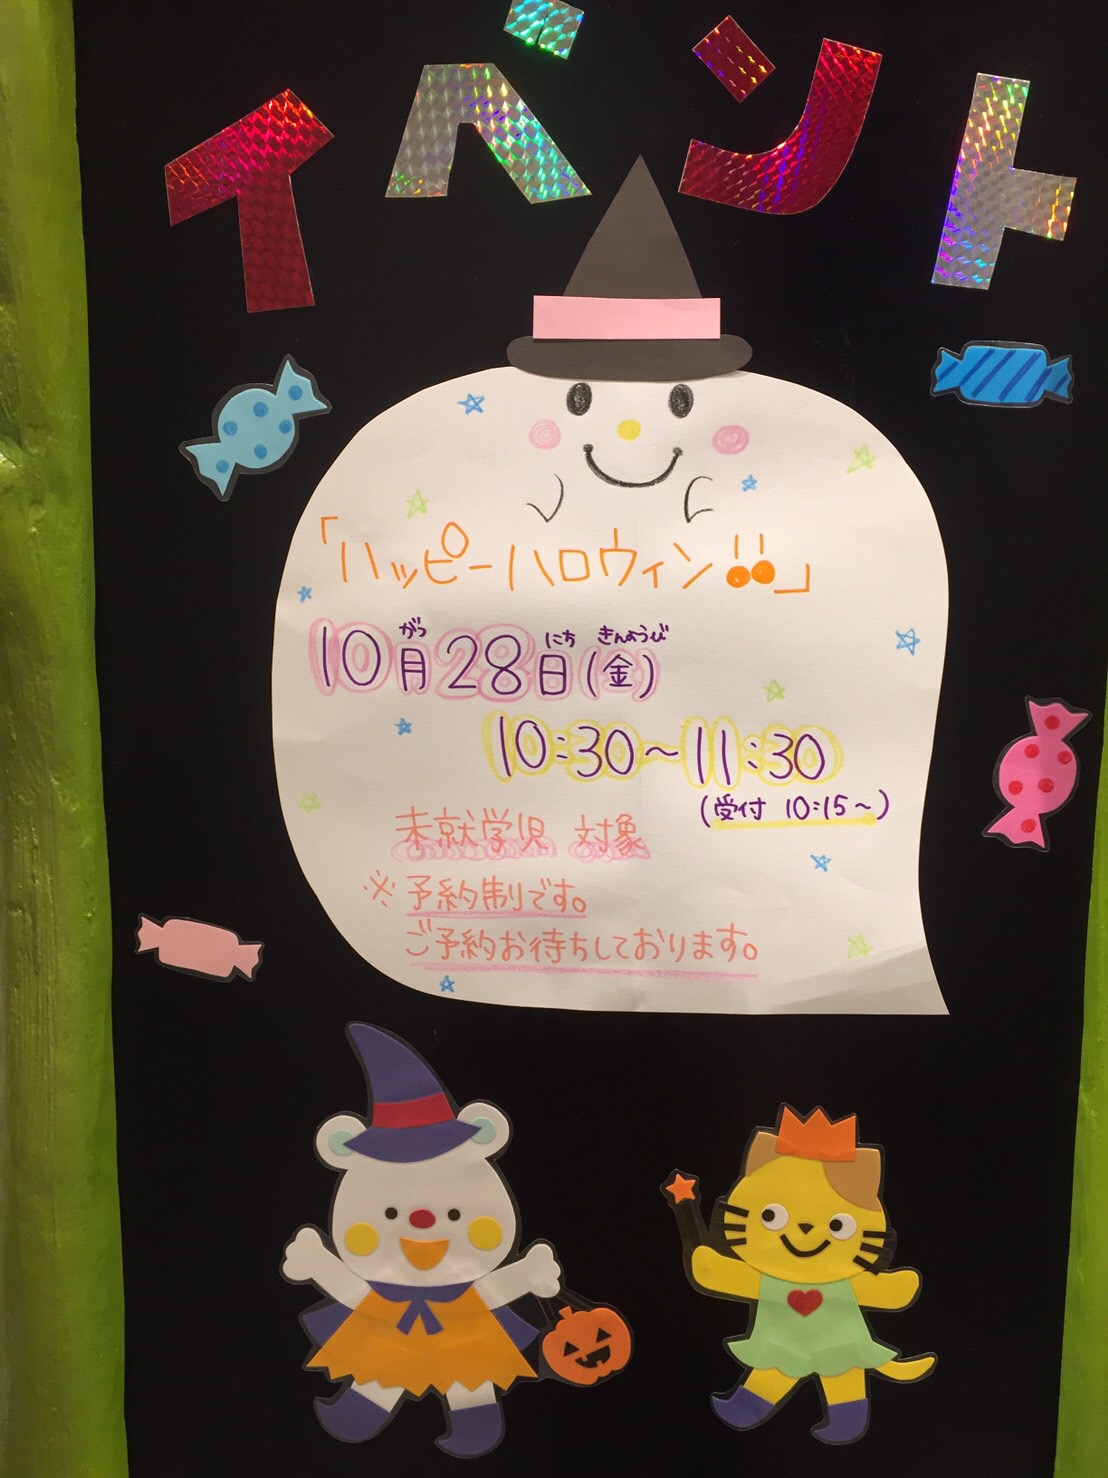 イベント
「ハッピーハロウィン!!」
がつ にち きんようび
10月28日(金)
10:30~11:30
(受付 10:15~)
未就学児 対象
※予約制です。
ご予約お待ちしております。